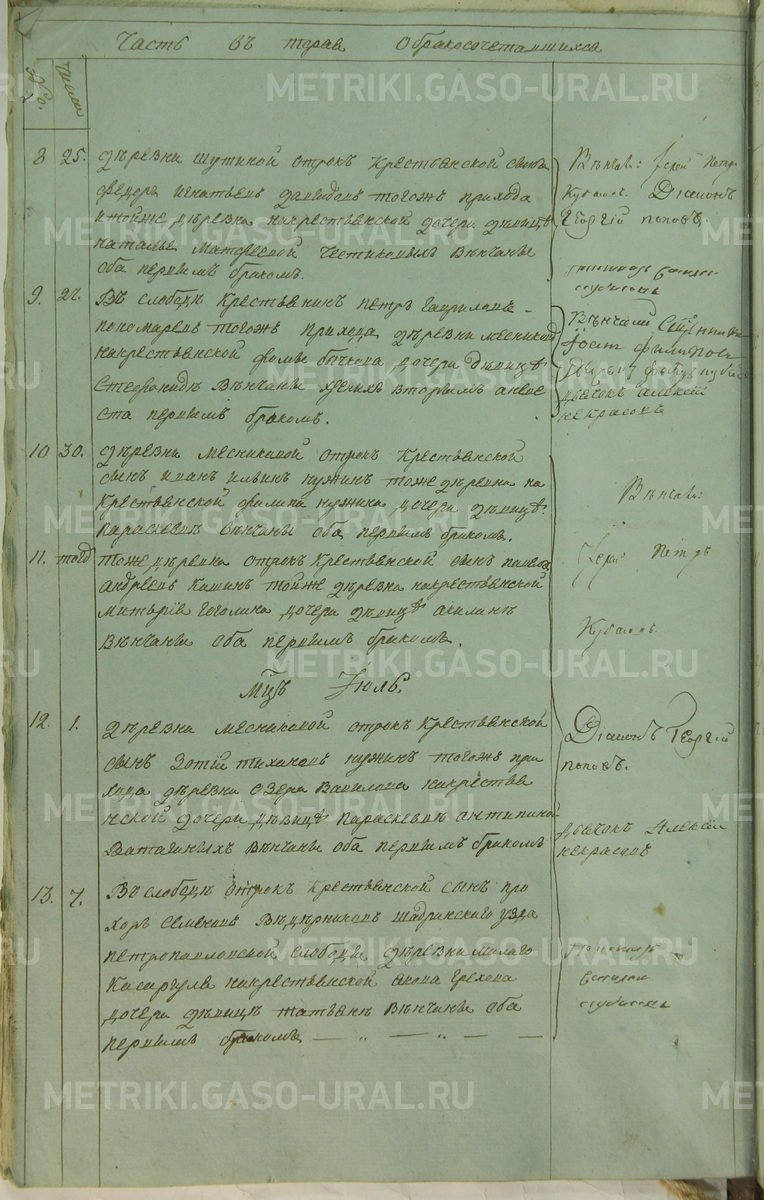 Часть въ торая о бракосочетавшихся
Число
METRIKI.GASO-URAL.RU
8 25. Деревни Шутиной отрокъ крестьянской сынъ
Федоръ Игнатьевъ тогожъ прихода
и тойже деревни на крестьянской дочери девицѣ
Наталье Матвеевой венчаны
оба первымъ бракомъ.
Венчав: Иерей Петръ
Кубаловъ. Діаконъ
Георгій Поповъ.
9. 27. Въ слободѣ крестьянинъ Петръ Гавриловъ
Пономаревъ тогожъ прихода деревни Месниковой
на крестьянской Фомы Бычкова дочери девицѣ
Стефанидѣ венчаны женихъ вторымъ а невѣ
ста первымъ бракомъ.
Венчали Свщенникъ
дьячокъ Алексей
Некрасовъ
10 30. Деревни Месниковой отрокъ крестьянской
сынъ Иванъ Ильинъ Нужинъ тоже деревни на
крестьянской Филипа Нужина дочери девицѣ
Параскеве венчаны оба первымъ бракомъ.
Венчав:
11. тогд тоже деревни отрокъ крестьянской сынъ Павелъ
Андреевъ Кашинъ тойже деревни на крестьянской
Митырія Гоголина дочери девицѣ Акилинѣ
венчаны оба первымъ бракомъ.
Иерей Петръ
Кубаловъ
Мцъ Июль.
12. 1. Деревни Месниковой отрокъ крестьянской
сынъ Зотій Тихановъ Нужинъ тогожъ при
хода деревни Озера Вавилова на крестья
нской дочери девицѣ Параскевѣ Антипиной
Ваташиныхъ венчаны оба первымъ бракомъ
Діаконъ Георгій
Поповъ.
дьячокъ Алексей
Некрасовъ
13. 7. Въ слободѣ отрокъ крестьянской сынъ Про
хоръ Семеновъ Ведерниковъ Шадринского уезда
Петропавловской слободы деревни Милаго
Касаргуля на крестьянской Якова Грехова
дочери девицѣ Татьянѣ венчаны оба
первымъ бракомъ — „ — „ — —
пономарь